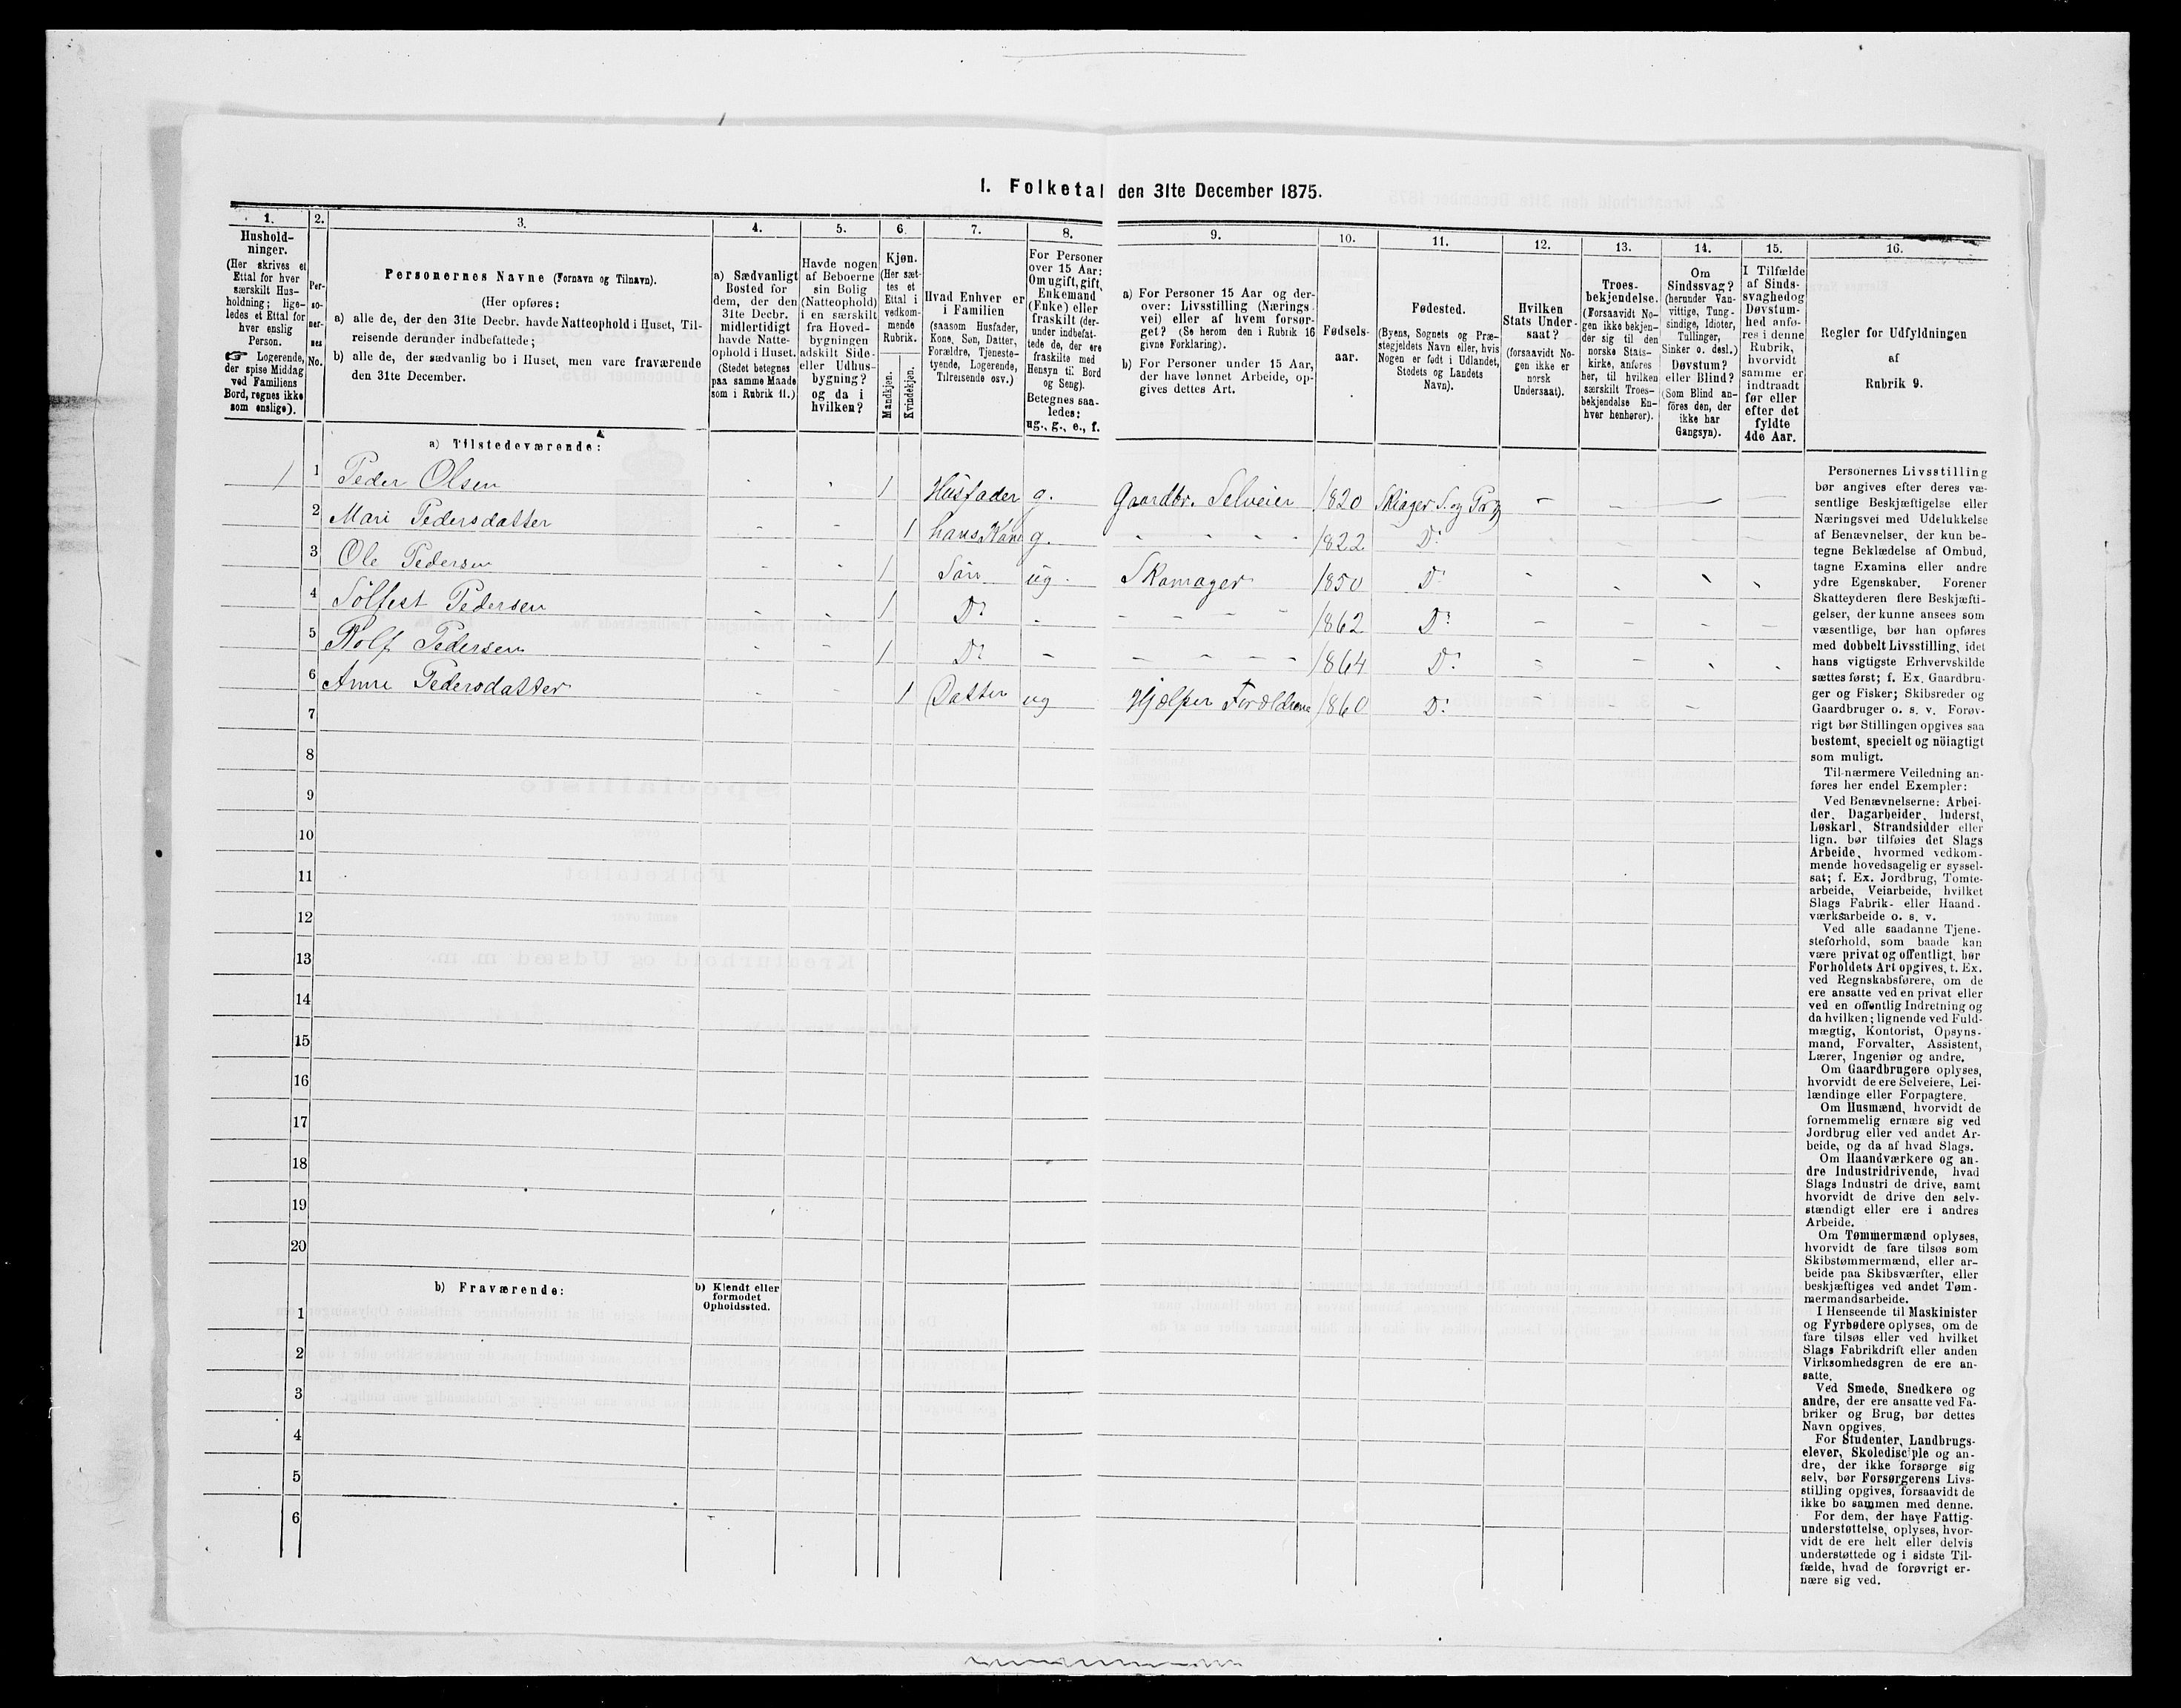 1. Folketal den 31te December 1875.
1. 2. 3. 4. 5. 6. 7. 8. 9. 10. 11. 12. 13. 14. 15. 16.
Hushold-
ninger.
(Her skrives et
Ettal for hver
særskilt Hus-
holdning; lige-
ledes et Ettal for
hver enslig
Person.
☞ Logerende,
der spise Middag
ved Familiens
Bord, regnes ikke
som enslige).
Per-
so-
ner-
nes
No.
Personernes Navne (Fornavn og Tilnavn).
(Her opføres:
a) alle de, der den 31te Decbr. havde Natteophold i Huset, Til-
reisende derunder indbefattede;
b) alle de, der sædvanlig bo i Huset, men vare fraværende
den 31te December.
a) Sædvanligt
Bosted for
dem, der den
31te Decbr.
midlertidigt
havde Natte-
ophold i Huset.
(Stedet betegnes
paa samme Maade
som i Rubrik 11.)
Havde nogen
af Beboerne
sin Bolig
(Natteophold)
i en særskilt
fra Hoved-
bygningen
adskilt Side-
eller Udhus-
bygning?
og da i
hvilken?
Kjøn.
(Her sæt-
tes et
Ettal i
vedkom-
mende
Rubrik.
Mandkjøn.
Kvindekjøn.
Hvad Enhver er
i Familien
(saasom Husfader,
Kone, Søn, Datter,
Forældre, Tjeneste-
tyende, Logerende,
Tilreisende osv.)
For Personer
over 15 Aar:
Om ugift, gift,
Enkemand
(Enke) eller
fraskilt (der-
under indbefat-
tede de, der ere
fraskilte med
Hensyn til Bord
og Seng).
Betegnes saa-
ledes:
ug., g., e., f.
a) For Personer 15 Aar og der-
over: Livsstilling (Nærings-
vei) eller af hvem forsør-
get? (Se herom den i Rubrik 16
givne Forklaring).
b) For Personer under 15 Aar,
der have lønnet Arbeide, op-
gives dettes Art.
Fødsels-
aar.
Fødested.
(Byens, Sognets og Præ-
stegjeldets Navn eller, hvis
Nogen er født i Udlandet,
Stedets og Landets
Navn).
Hvilken
Stats Under-
saat?
(forsaavidt No-
gen ikke er
norsk
Undersaat).
Troes-
bekjendelse.
(Forsaavidt No-
gen ikke bekjen-
der sig til den
norske Stats-
kirke, anføres
her, til hvilken
særskilt Troes-
bekjendelse En-
hver henhører).
Om
Sindssvag?
(herunder Van-
vittige, Tung-
sindige, Idioter,
Tullinger,
Sinker o. desl.)
Døvstum?
eller Blind?
(Som Blind an-
føres den, der
ikke har
Gangsyn).
I Tilfælde
af Sinds-
svaghedog
Døvstum-
hed anfø-
res i denne
Rubrik,
hvorvidt
samme er
indtraadt
før eller
efter det
fyldte
4de Aar.
Regler for Udfyldningen
af
Rubrik 9.
a) Tilstedeværende:
1 1 Peder Olsen - - 1 Husfader g. Gaardbr. Selveier 1820 Skiager S. og Pr. - - - -
2 Mari Pedersdatter - - 1 hans Kone g. - - - - 1822 Do - - - -
3 Ole Pedersen - - 1 Søn ug. Skomager 1850 Do - - - -
4 Sølfest Pedersen - - 1 Do - - - - - 1862 Do - - - -
5 Rolf Pedersen - - 1 Do - - - - - 1864 Do - - - -
6 Anne Pedersdatter - - 1 Datter ug Hjælper Forældrene 1860 Do - - -
7
8
9
10
11
12
13
14
15
16
17
18
19
20
b) Fraværende:
b) Kjendt eller
formodet
Opholdssted.
1
2
3
4
5
6
Personernes Livsstilling
bør angives efter deres væ-
sentlige Beskjæftigelse eller
Næringsvei med Udelukkelse
af Benævnelser, der kun be-
tegne Beklædelse af Ombud,
tagne Examina eller andre
ydre Egenskaber. Forener
Skatteyderen flere Beskjæfti-
gelser, der kunne ansees som
væsentlige, bør han opføres
med dobbelt Livsstilling, idet
hans vigtigste Erhvervskilde
sættes først; f. Ex. Gaardbru-
ger og Fisker; Skibsreder og
Gaardbruger o. s. v. Forøv-
rigt bør Stillingen opgives saa
bestemt, specielt og nöiagtigt
som muligt.
Til nærmere Veiledning an-
føres her endel Exempler:
Ved Benævnelserne: Arbei-
der, Dagarbeider, Inderst,
Løskarl, Strandsidder eller
lign. bør tilføies det Slags
Arbeide, hvormed vedkom-
mende hovedsagelig er syssel-
sat; f. Ex. Jordbrug, Tomte-
arbeide, Veiarbeide, hvilket
Slags Fabrik- eller Haand-
værksarbeide o. s. v.
Ved alle saadanne Tjene-
steforhold, som baade kan
være privat og offentligt, bør
Forholdets Art opgives, t. Ex.
ved Regnskabsførere, om de
ere ansatte ved en privat eller
ved en offentlig Indretning og
da hvilken; lignende ved Fuld-
mægtig, Kontorist, Opsyns-
mand, Forvalter, Assistent,
Lærer, Ingeniør og andre.
Om Gaardbrugere oplyses,
hvorvidt de ere Selveiere, Lei-
lændinge eller Forpagtere.
Om Husmænd, hvorvidt de
fornemmelig ernære sig ved
Jordbrug eller ved andet Ar-
beide, og da af hvad Slags.
Om Haandværkere og an-
dre Industridrivende, hvad
Slags Industri de drive, samt
hvorvidt de drive den selv-
stændigt eller ere i andres
Arbeide.
Om Tømmermænd oplyses,
hvorvidt de fare tilsøs som
Skibstømmermænd, eller ar-
beide paa Skibsværfter, eller
beskjæftiges ved andet Tøm-
mermandsarbeide.
I Henseende til Maskinister
og Fyrbødere oplyses, om de
fare tilsøs eller ved hvilket
Slags Fabrikdrift eller anden
Virksomhedsgren de ere an-
satte.
Ved Smede, Snedkere og
andre, der ere ansatte ved Fa-
briker og Brug, bør dettes
Navn opgives.
For Studenter, Landbrugs-
elever, Skoledisciple og an-
dre, der ikke forsørge sig
selv, bør Forsørgerens Livs-
stilling opgives, forsaavidt de
ikke bo sammen med denne.
For dem, der have Fattig-
understøttelse, oplyses, hvor-
vidt de ere helt eller delvis
understøttede og i sidste Til-
fælde, hvad de forøvrigt er-
nære sig ved.